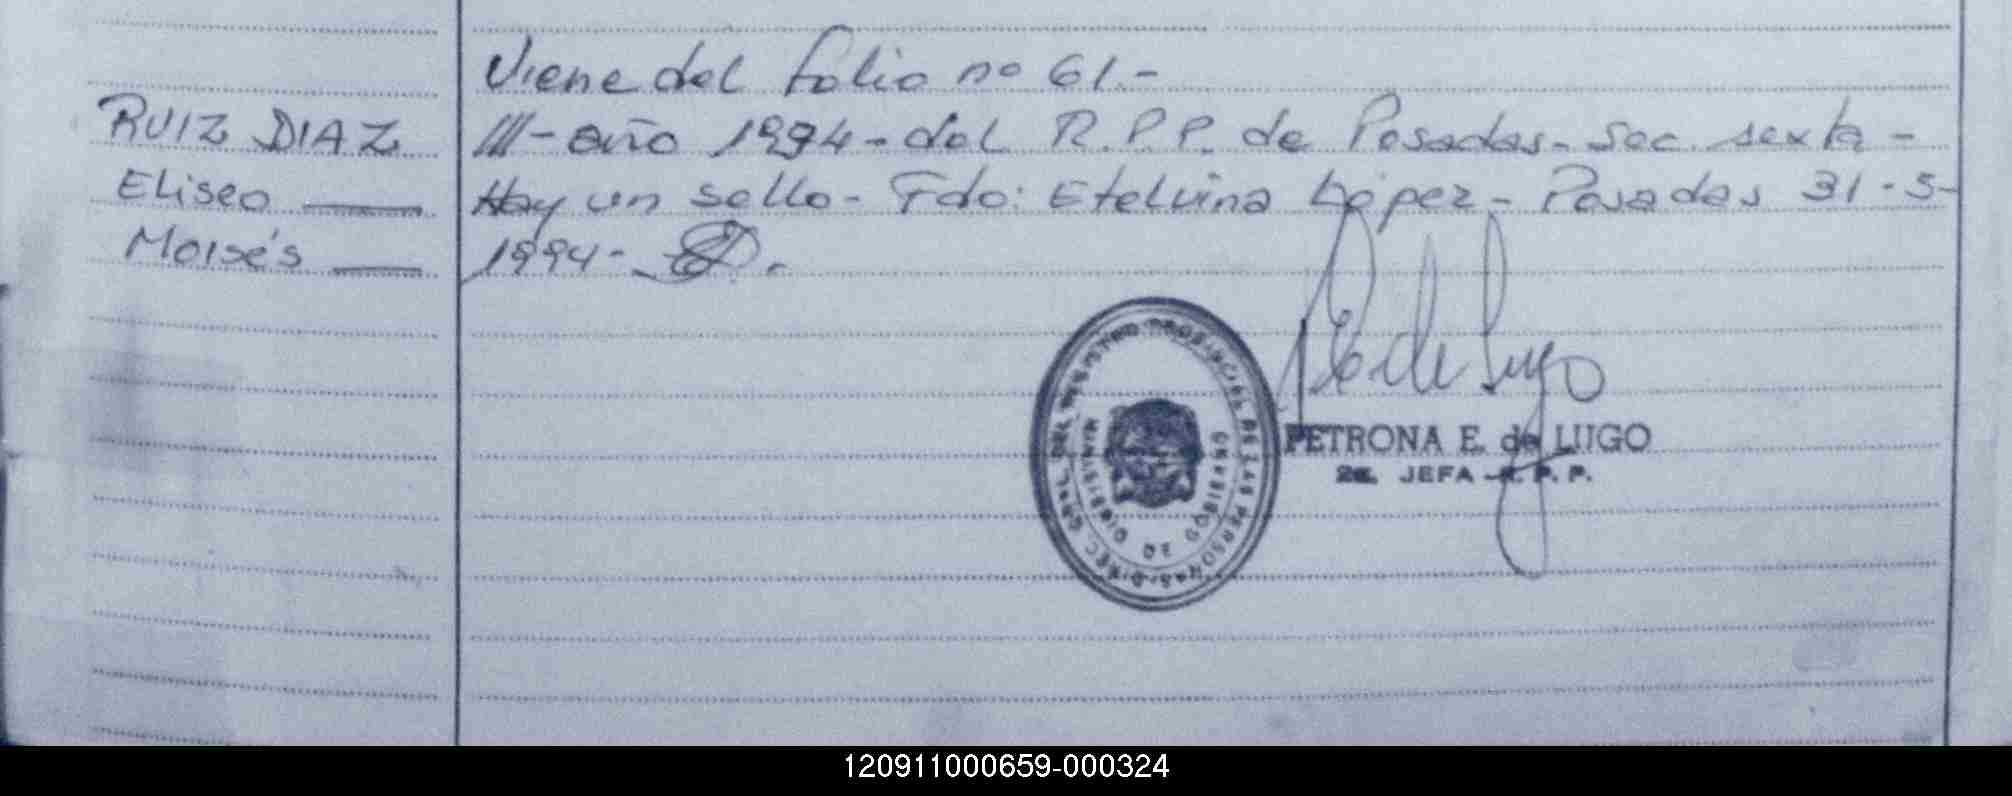 Viene del folio no 61.-
RUIZ DIAZ III- año 1994- del R.P.P. de Posadas- Sec. sexta-
Eliseo Hay un sello- Fdo: Etelvina López- Posadas 31-5-
Moisés 1994-
DIREC. GRAL. DEL REGISTRO PROVINCIAL DE LAS PERSONAS
MINISTERIO DE GOBIERNO
P. E. de Lugo
PETRONA E. de LUGO
2a. JEFA R. P. P.
120911000659-000324